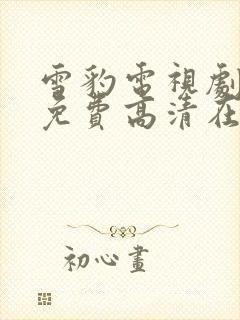 雪豹電視劇
免費高清在
初心畫